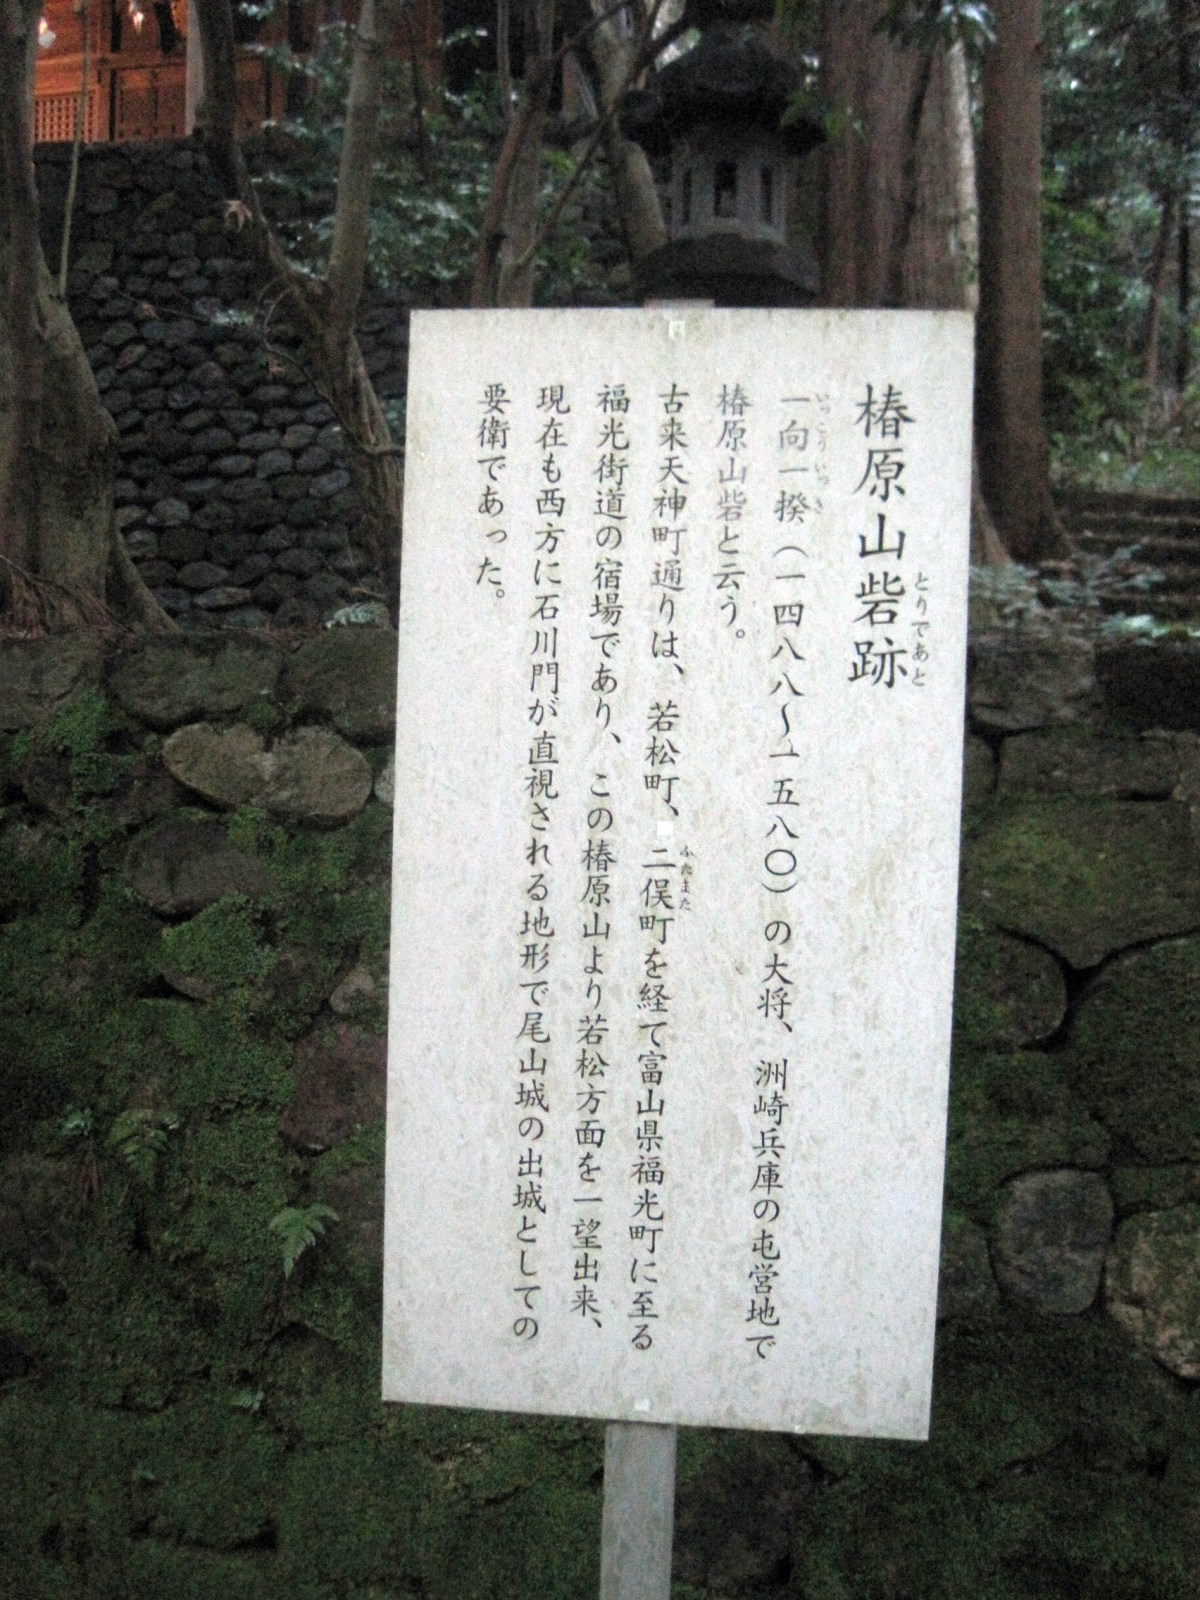 椿原山砦跡
とりであと
一向一揆（一四八八〜一五八〇）の大将、洲崎兵庫の屯営地で
いっこういっき
椿原山砦と云う。
古来天神町通りは、若松町、二俣町を経て富山県福光町に至る
ふたまた
福光街道の宿場であり、この椿原山より若松方面を一望出来、
現在も西方に石川門が直視される地形で尾山城の出城としての
要衛であった。